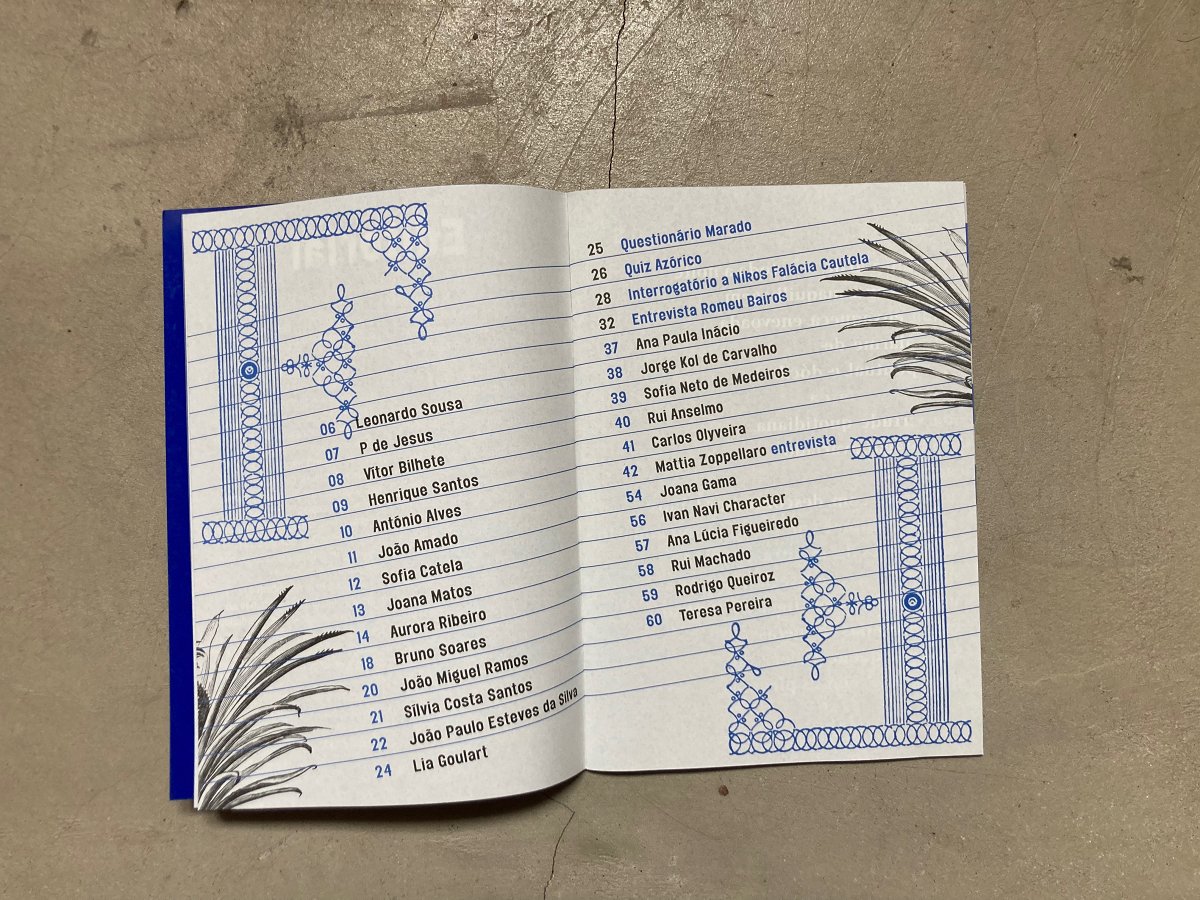 06 Leonardo Sousa
07 P de Jesus
08 Vítor Bilhete
09 Henrique Santos
10 António Alves
11 João Amado
12 Sofia Catela
13 Joana Matos
14 Aurora Ribeiro
18 Bruno Soares
20 João Miguel Ramos
21 Sílvia Costa Santos
22 João Paulo Esteves da Silva
24 Lia Goulart
25 Questionário Marado
26 Quiz Azórico
28 Interrogatório a Nikos Falácia Cautela
32 Entrevista Romeu Bairos
37 Ana Paula Inácio
38 Jorge Kol de Carvalho
39 Sofia Neto de Medeiros
40 Rui Anselmo
41 Carlos Olyveira
42 Mattia Zoppellaro entrevista
54 Joana Gama
56 Ivan Navi Character
57 Ana Lúcia Figueiredo
58 Rui Machado
59 Rodrigo Queiroz
60 Teresa Pereira